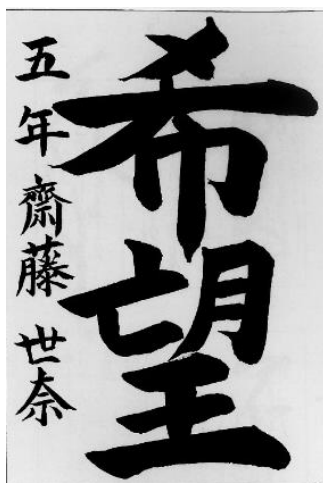 希望
五年 齋藤 世奈